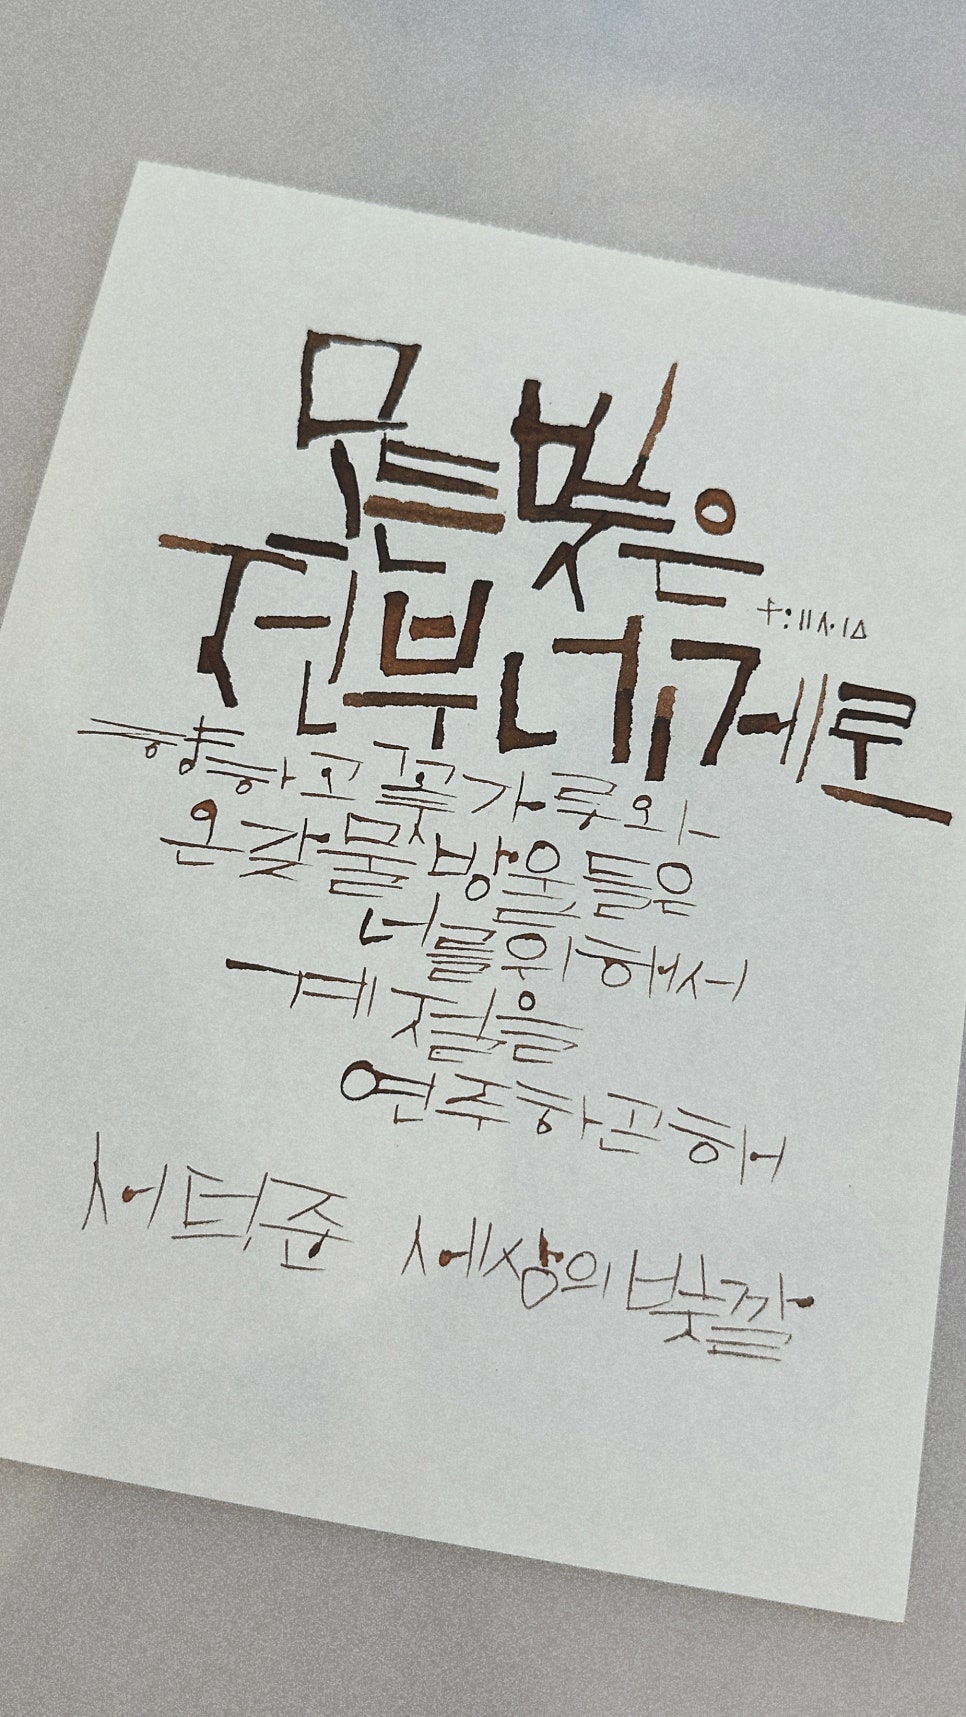 모든 빛은
전부 네게로
향하고 꽃가루와
온갖 물방울들은
너를 위해서
계절을
연주하곤 해
서덕준 세상의 빛깔